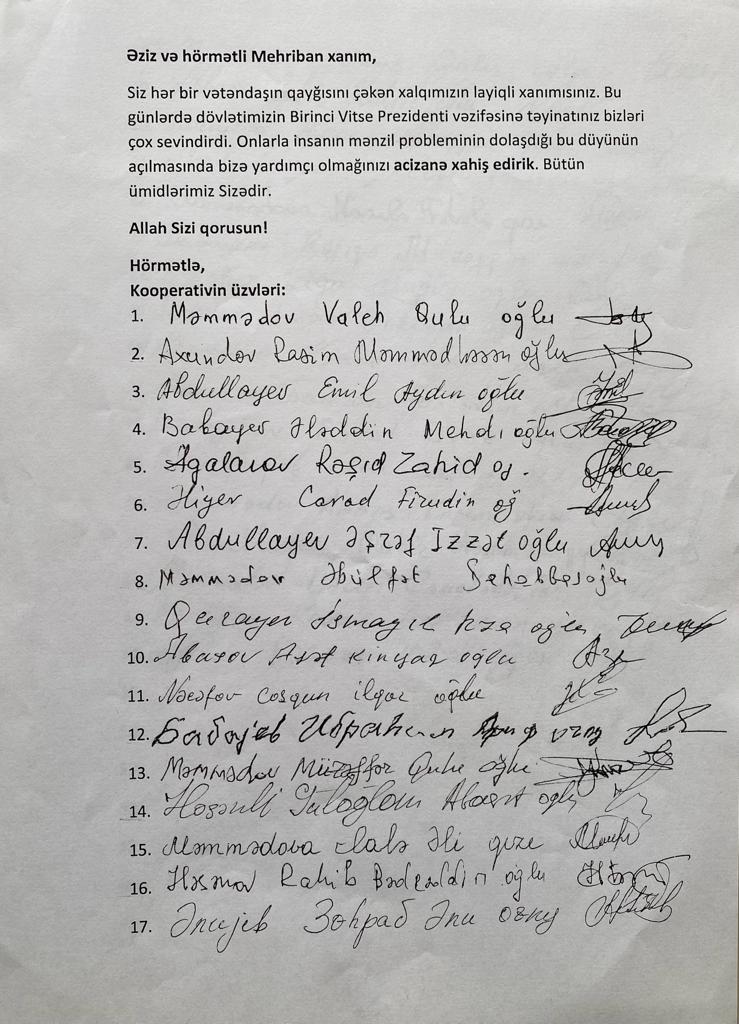 Əziz və hörmətli Mehriban xanım,
Siz hər bir vətəndaşın qayğısını çəkən xalqımızın layiqli xanımısınız. Bu
günlərdə dövlətimizin Birinci Vitse Prezidenti vəzifəsinə təyinatınız bizləri
çox sevindirdi. Onlarla insanın mənzil probleminin dolaşdığı bu düyünün
açılmasında bizə yardımçı olmağınızı acizanə xahiş edirik. Bütün
ümidlərimiz Sizədir.
Allah Sizi qorusun!
Hörmətlə,
Kooperativin üzvləri:
1. Məmmədov Valeh Qulu oğlu
2. Axundov Rasim Məmmədhəsən oğlu
3. Abdullayev Emil Aydın oğlu
4. Babayev Ələddin Mehdi oğlu
5. Agalarov Rəşid Zahid og.
6. Firudin oğ
7. Abdullayev Əşrəf Izzət oğlu
8. Məmmədov Əbülfət
9. İsmayıl oğlu
10. oğlu
11. Coşqun ilqar oğlu
12.
13. Məmmədov Müzəffər Qulu oğlu
14. Həsənli oğlu
15. Məmmədova Əli qızı
16. Həsənov oğlu
17. Зоһраб Әли оғлу